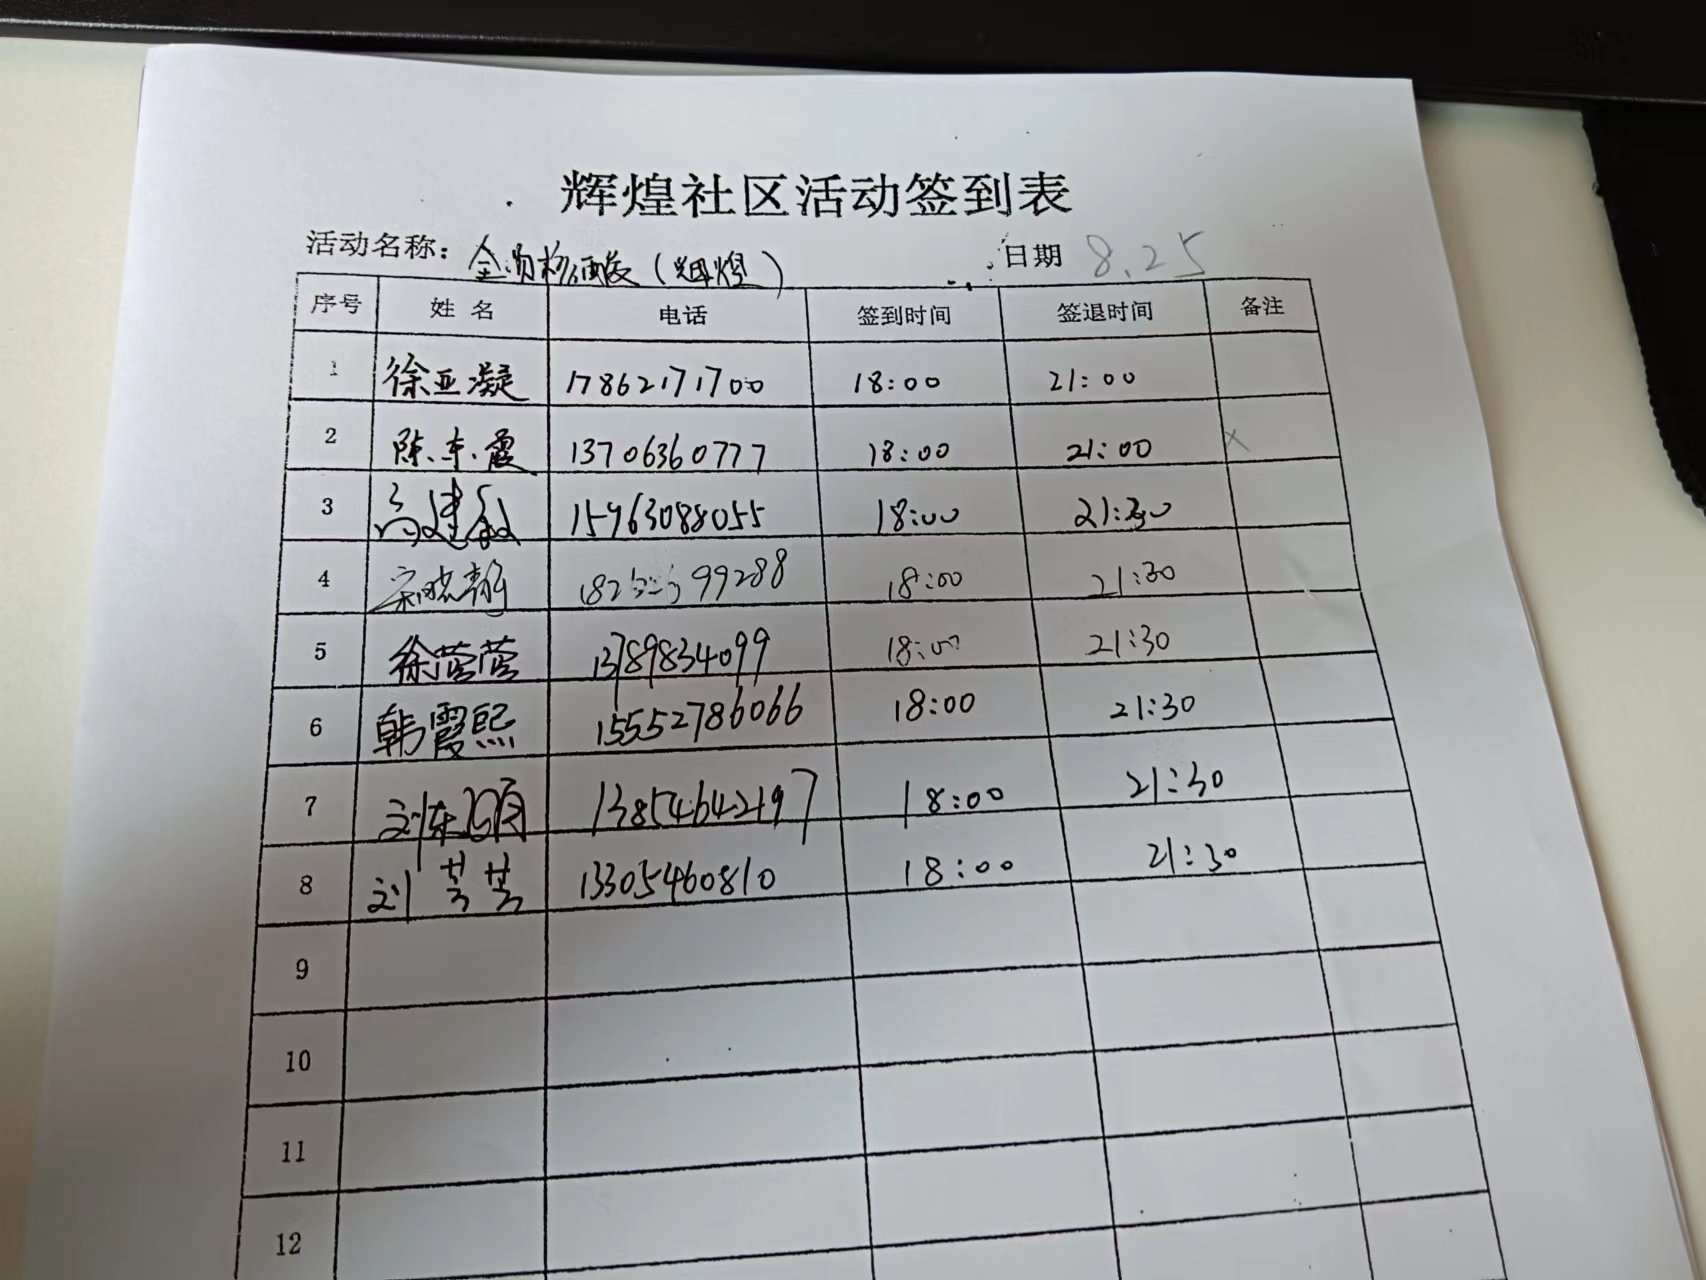 辉煌社区活动签到表
活动名称： 全员核酸（辉煌） 日期 8.25
序号 姓 名 电话 签到时间 签退时间 备注
1 徐亚凝 17862171700 18:00 21:00
2 陈东霞 13706360777 18:00 21:00 X
3 高建敏 15963088055 18:00 21:30
4 宋晓静 18:00 21:30
5 徐莹莹 13789834099 18:00 21:30
6 韩霞熙 15552786066 18:00 21:30
7 13854642197 18:00 21:30
8 刘芸芸 13305460810 18:00 21:30
9
10
11
12